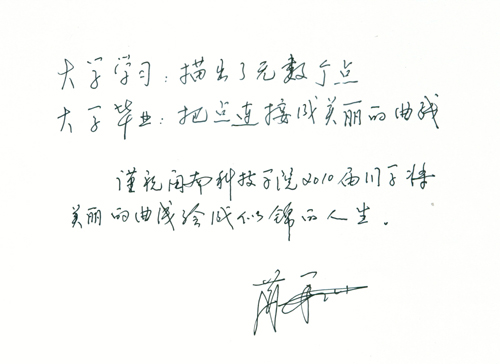 大学学习：描出了无数个点
大学毕业：把点连接成美丽的曲线
谨祝闽南科技学院2010届同学将
美丽的曲线绘成似锦的人生.